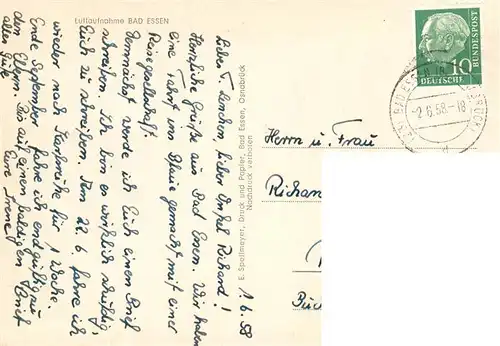 Luftaufnahme BAD ESSEN
1.6.58
Liebe T. Lenchen, lieber Onkel Richard!
Herzliche Grüße aus Bad Essen. Wir haben
eine Fahrt ins Blaue gemacht mit einer
Reisegesellschaft.
werde ich Euch einen Brief
schreiben. Ich bin es wirklich schuldig,
Euch zu schreiben. Am 22.6. fahre ich
wieder nach Karlsruhe für 1 Woche.
Ende September fahre ich endgültig zu
den Eltern. Bis auf einen baldigen Brief
alles Gute
Eure Irene
E. Spellmeyer, Druck und Papier, Bad Essen, Osnabrück
Nachdruck verboten
10
DEUTSCHE
BUNDESPOST
BAD ES
-2.6.58-18
Herrn u. Frau
Richar